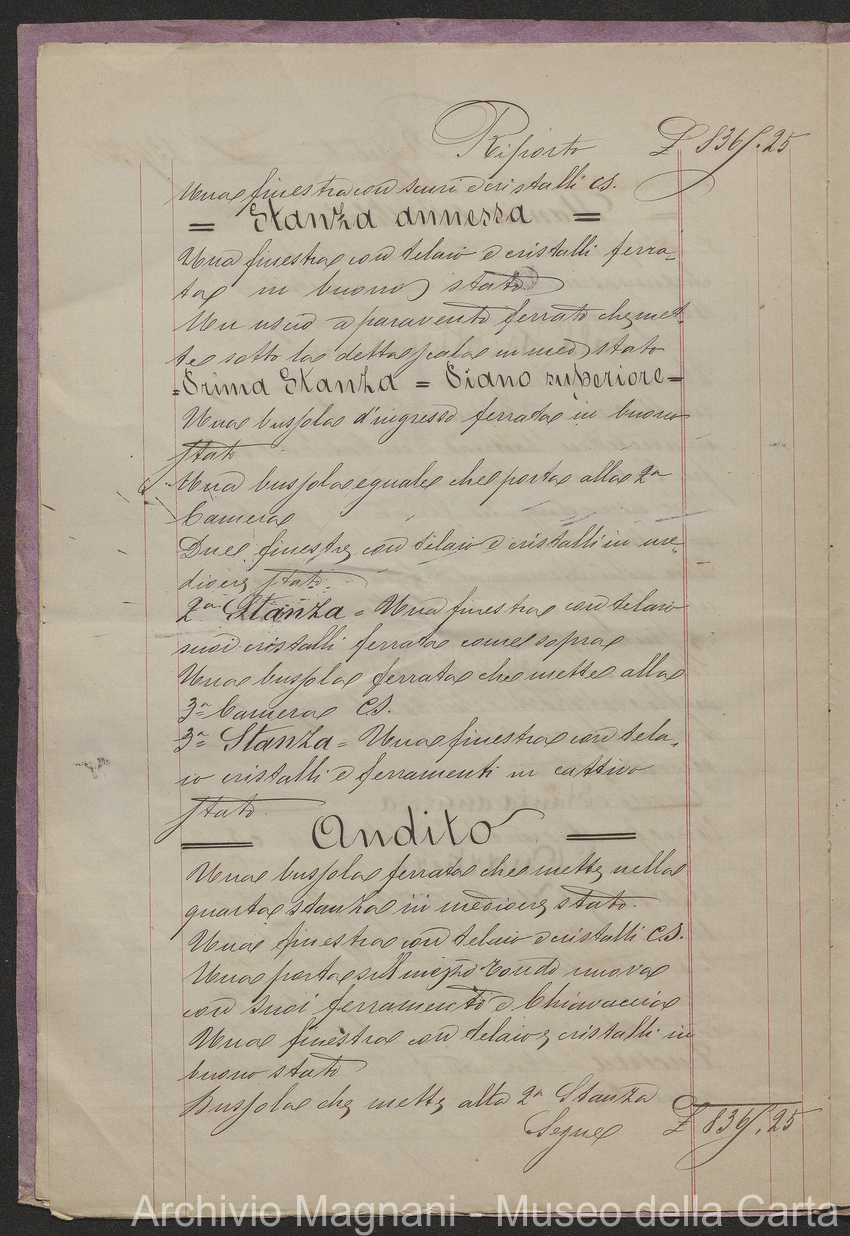 Riporto £ 836/.25
Una finestra con scuri e cristalli cs.
= Stanza annessa =
Una finestra con telaio e cristalli ferra-
ta in buono stato
Un uscio a paravento ferrato che met-
te sotto la detta scala in med stato
= Prima Stanza = Piano superiore =
Una bussola d'ingresso ferrata in buono
stato
Una bussola eguale che porta alla 2a
Camera
Due finestre con telaio e cristalli in me-
diocre stato.
2a Stanza = Una finestra con telaio
suoi cristalli ferrata come sopra
Una bussola ferrata che mette alla
3a Camera C.S.
3a Stanza = Una finestra con tela-
io cristalli e ferramenti in cattivo
stato
= Andito =
Una bussola ferrata che mette nella
quarta stanza in mediocre stato.
Una finestra con telaio e cristalli C.S.
Una porta sull tondo nuova
con suoi ferramenti e Chiavaccia
Una finestra con telaio e cristalli in
buono stato
Bussola che mette alla 2a Stanza
Segue £ 836/.25
Archivio Magnani - Museo della Carta